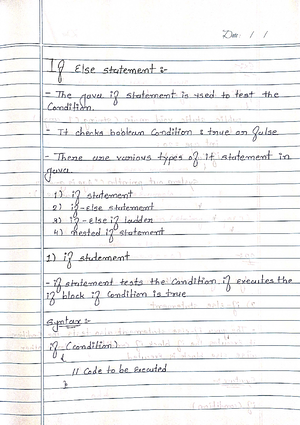 Date: / /
If Else statement :-
- The java if statement is used to test the
Condition.
- It checks boolean Condition : true or false
- There are various types of if statement in
java.
1) if statement
2) if-else statement
3) if-else if ladder
4) nested if statement
1) if statement
- if statement tests the Condition. if executes the
if block if Condition is true
Syntax :-
if (condition)
{
// Code to be Executed
}